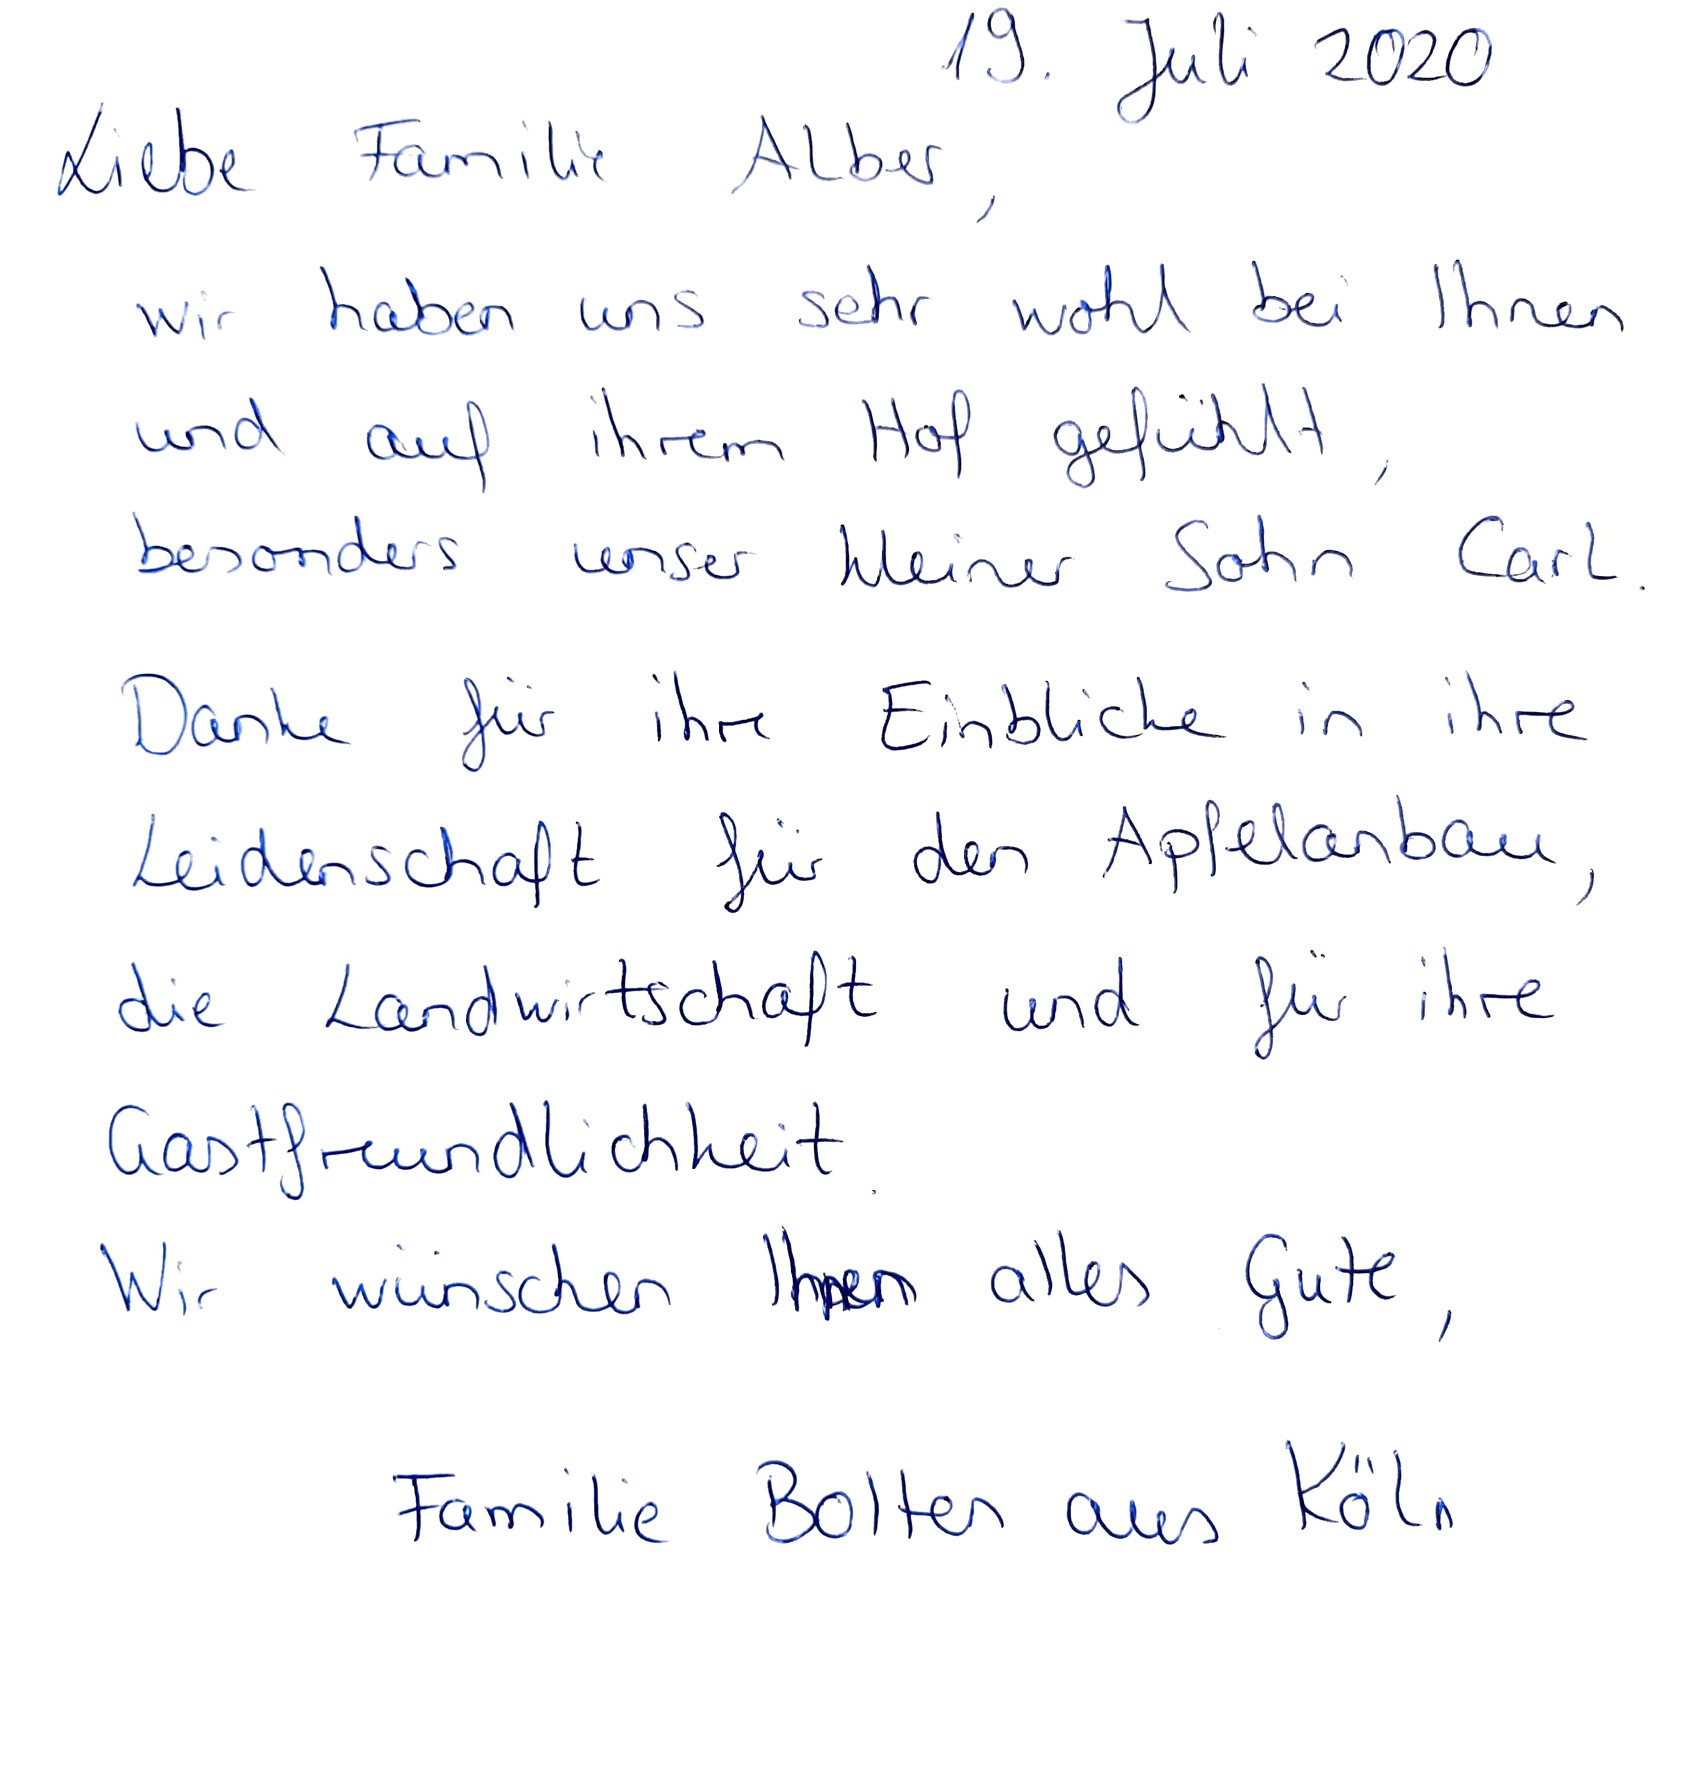 19. Juli 2020
Liebe Familie Alber,
wir haben uns sehr wohl bei Ihnen
und auf ihrem Hof gefühlt,
besonders unser kleiner Sohn Carl.
Danke für ihre Einblicke in ihre
Leidenschaft für den Apfelanbau,
die Landwirtschaft und für ihre
Gastfreundlichkeit.
Wir wünschen Ihnen alles Gute,
Familie Bolten aus Köln